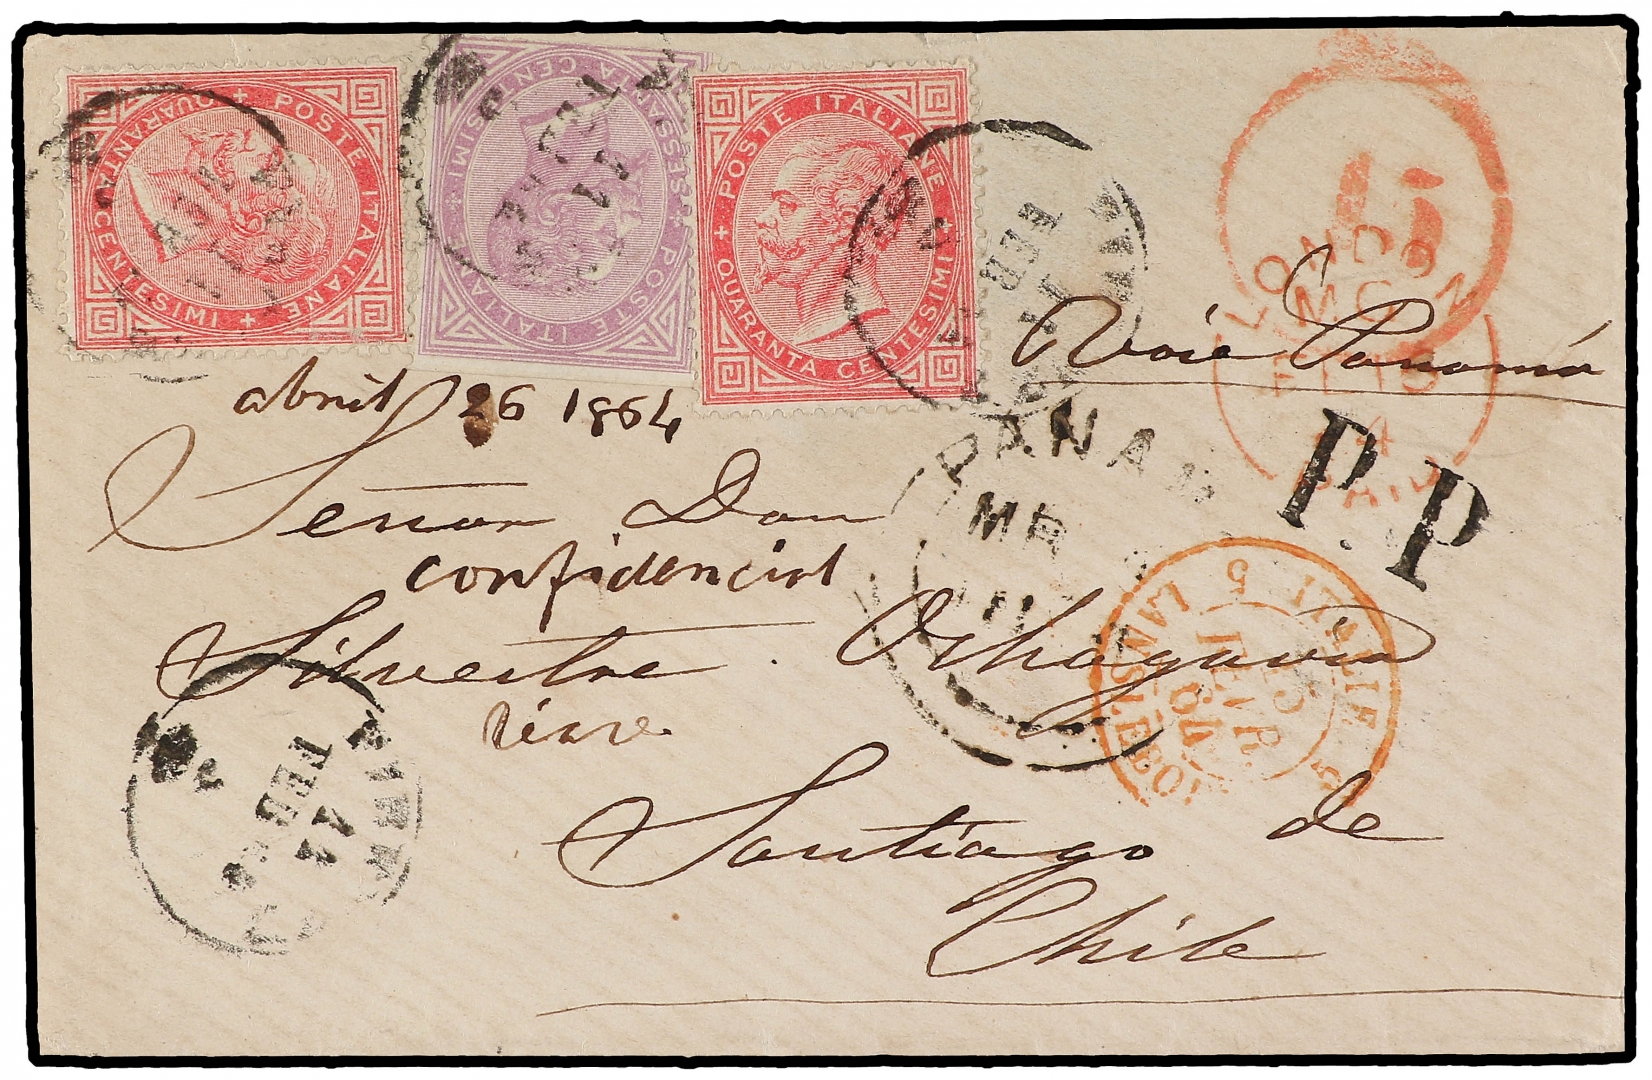 POSTE ITALIANE
QUARANTA CENTESIMI
POSTE ITALIANE
SESSANTA CENTESIMI
POSTE ITALIANE
QUARANTA CENTESIMI
FEB
LONDON
PAID
Voie Panama
abril 26 1864
P.P
PANAMA
MR
Señor Don
confidencial
Silvestre Ochagavia
5 ITALIE 5
15 FEVR 64
LANSLEBOURG
FEBB
Santiago de
Chile